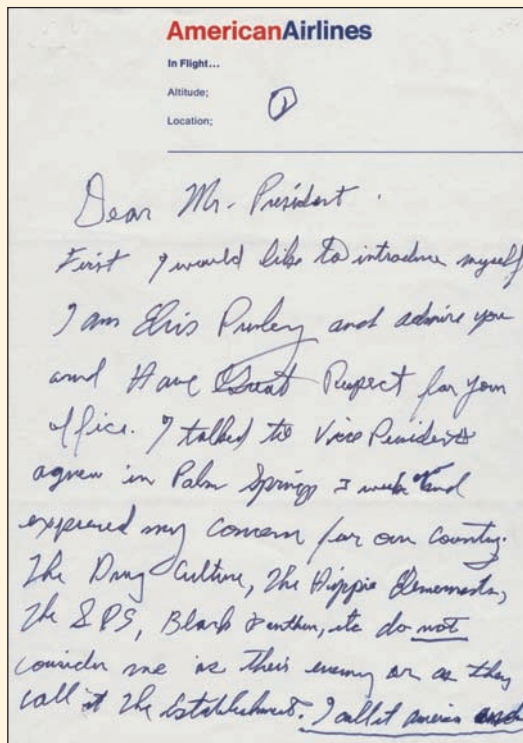 AmericanAirlines
In Flight...
Altitude;
Location;
1
Dear Mr. President.
First I would like to introduce myself
I am Elvis Presley and admire you
and Have Great Respect for your
office. I talked to Vice President
agnew in Palm Springs 3 weeks and
expressed my concern for our country.
The Drug Culture, The Hippie Elements,
The SDS, Black Panthers, etc do not
consider me as their enemy or as they
call it The Establishment. I call it america and